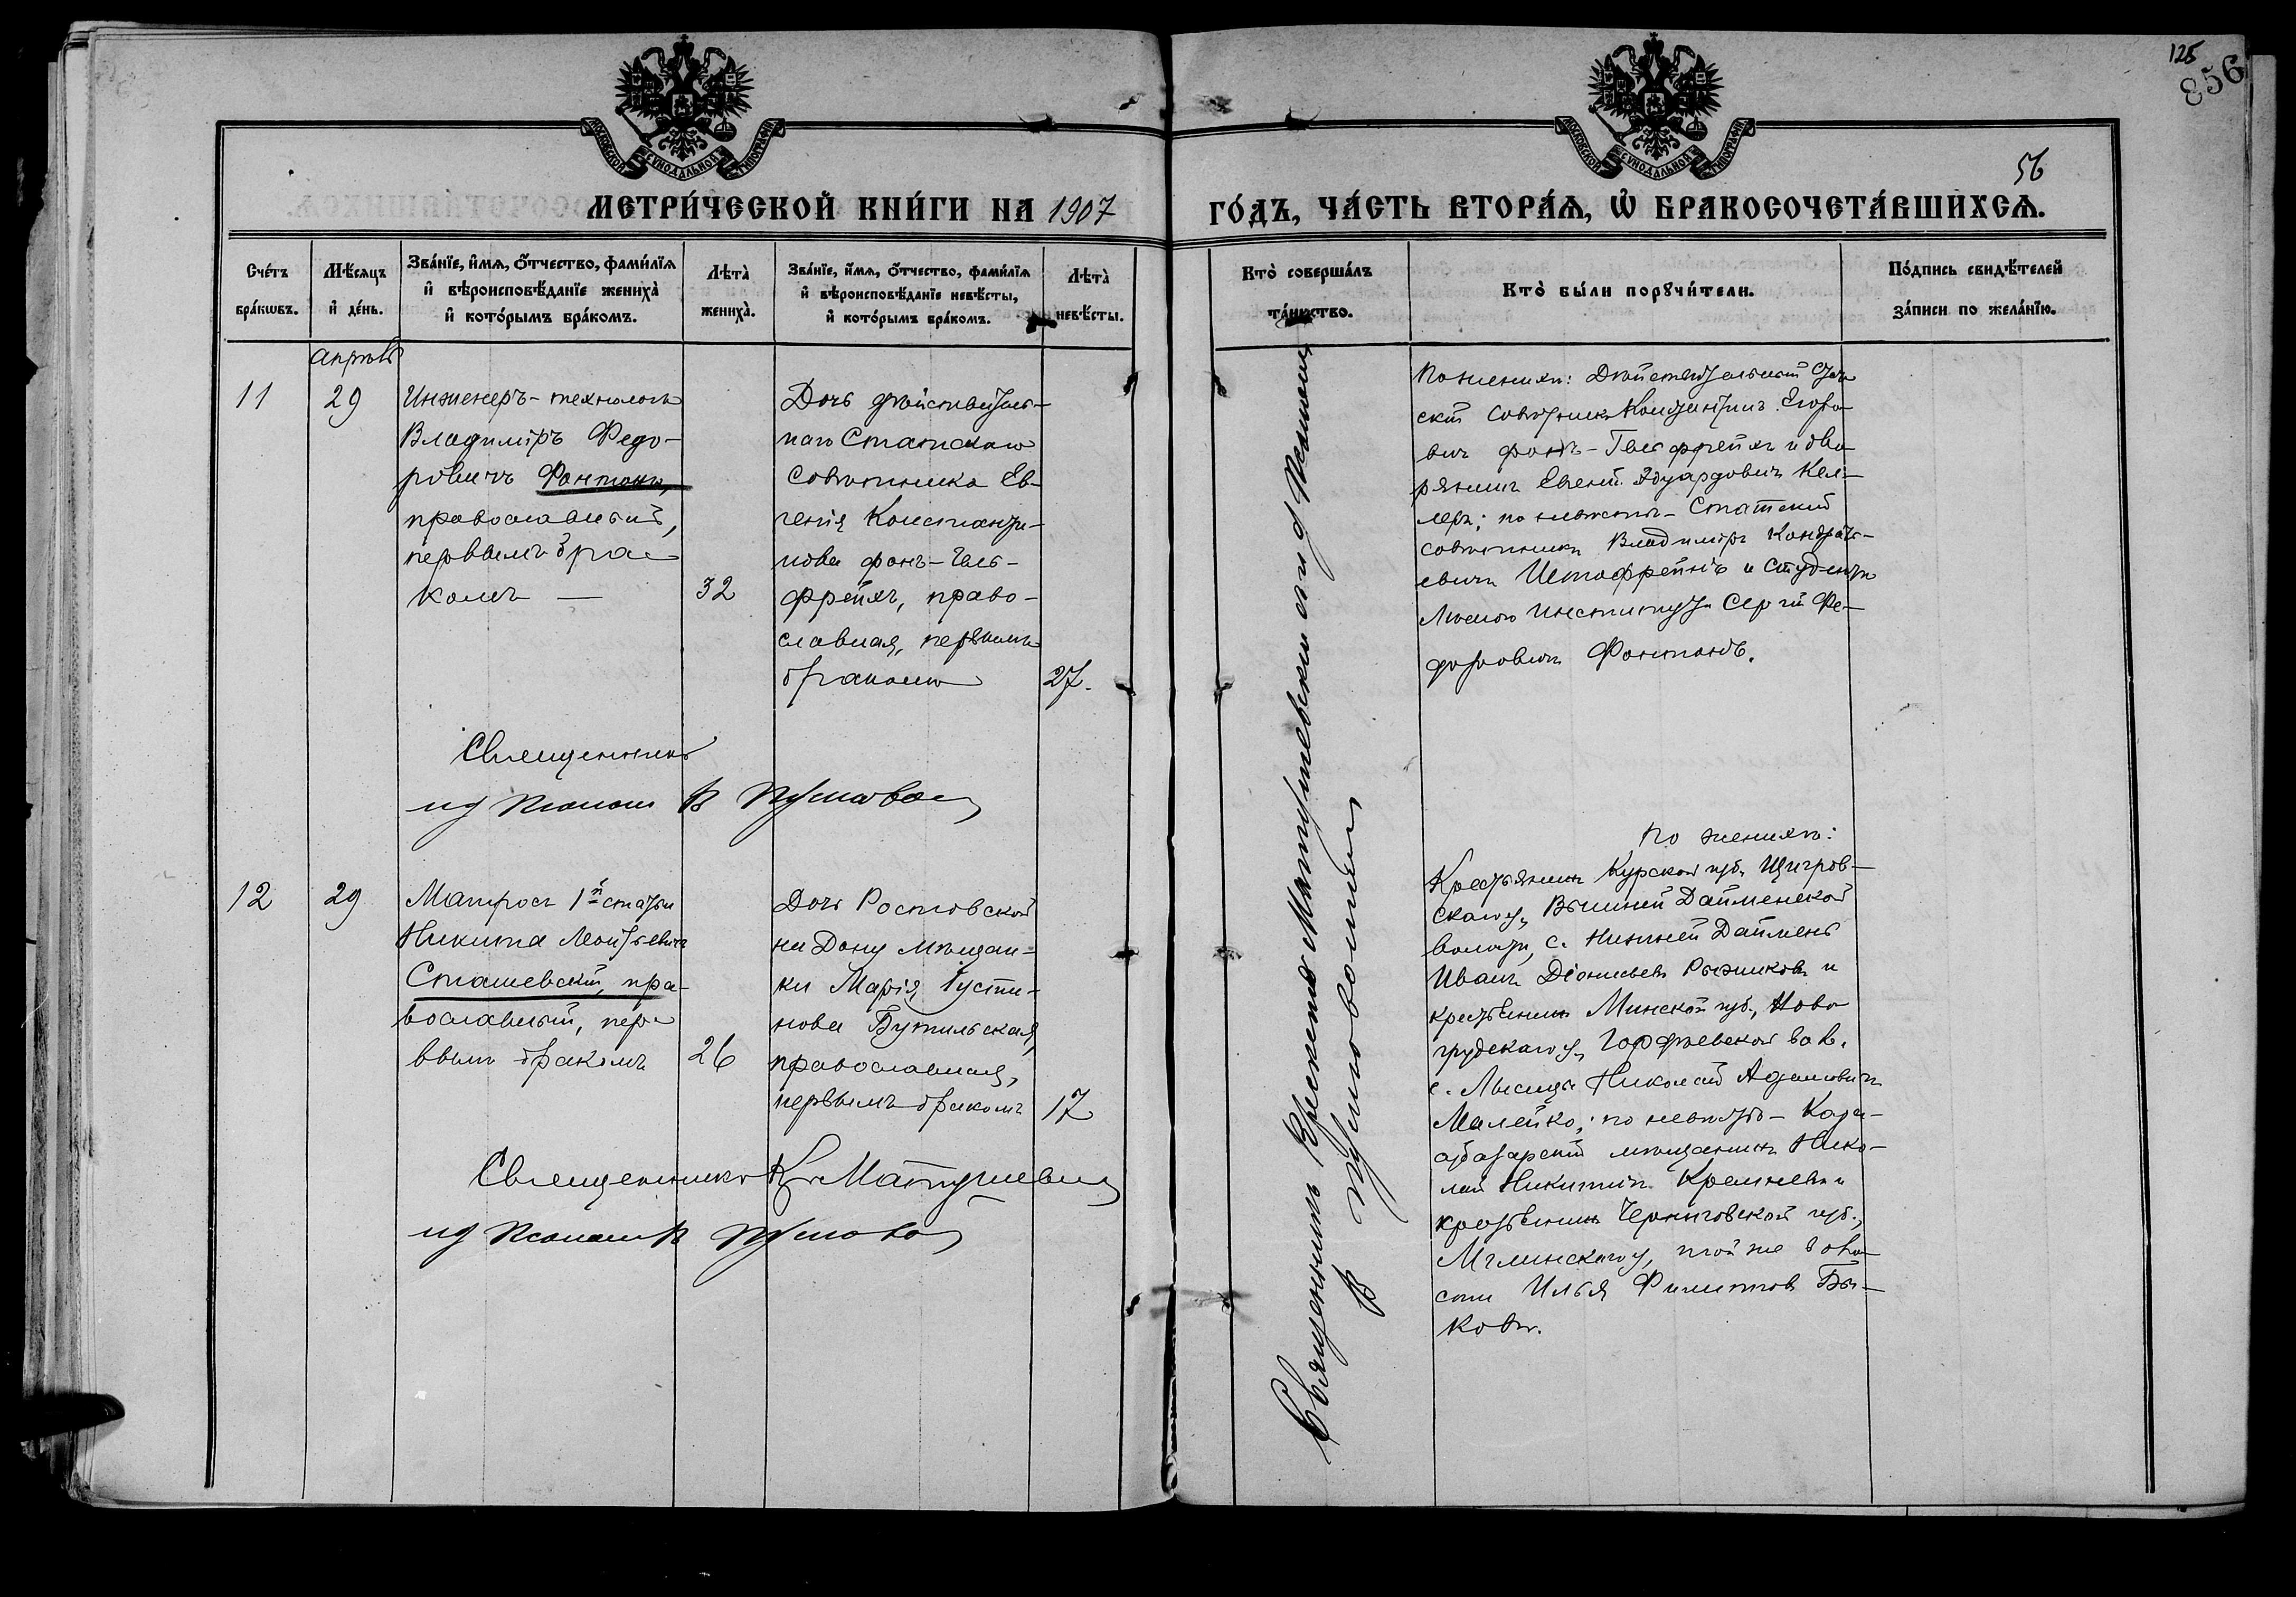 125
856
56
МОСКОВСКОЙ СѴНОДАЛЬНОЙ ТИПОГРАФІИ
МОСКОВСКОЙ СѴНОДАЛЬНОЙ ТИПОГРАФІИ
МЕТРИ́ЧЕСКОЙ КНИ́ГИ НА 1907
ГО́ДЪ, ЧА́СТЬ ВТОРА́Я, Ѽ БРАКОСОЧЕТА́ВШИХСЯ.
Сче́тъ бра́кѡвъ.
Мѣ́сяцъ и҆ де́нь.
Зва́нїе, и҆́мя, ѻ҆́тчество, фами́лїя и҆ вѣроисповѣ́данїе жениха̀ и҆ кото́рымъ бра́комъ.
Лѣта̀ жениха̀.
Зва́нїе, и҆́мя, ѻ҆́тчество, фами́лїя и҆ вѣроисповѣ́данїе невѣ́сты, и҆ кото́рымъ бра́комъ.
Лѣта̀ невѣ́сты.
Кто̀ соверша́лъ та́инство.
Кто̀ бы́ли порꙋчи́тели.
По́дпись свидѣ́телей за́писи по жела́нїю.
Апрѣль
11
29
Инженеръ-технологъ
Владиміръ Федо-
ровичъ Фонтонъ,
православный,
первымъ бра-
комъ —
32
Дочь дѣйствитель-
наго Статскаго
Совѣтника Ев-
генія Константи-
нова фонъ-Гель-
фрейхъ, право-
славная, первымъ
бракомъ
27.
По женихѣ: Дѣйствительный Стат-
скій Совѣтникъ Константинъ Егоро-
вич фонъ-Гельфрейхъ и дво-
рянинъ Евгеній Эдуардовичъ Кел-
леръ; по невѣстѣ - Статскій
совѣтникъ Владиміръ Кондрать-
евичъ Истофрейнъ и студентъ
Лѣсного Института Сергій Фе-
доровичъ Фонтонъ.
Священникъ
ид псалом В
12
29
Матросъ 1й статьи
Никита Моисѣевичъ
Сташевскій, пра-
вославный, пер-
вымъ бракомъ
26
Дочь Ростовской
на Дону мѣщан-
ки Марія Іусти-
нова Бутильская,
православная,
первымъ бракомъ
17
По женихѣ:
Крестьянинъ Курской губ. Щигров-
скаго у., Вышней Дайменской
волости, с. Нижней Даймень
Иванъ Діонисьевъ Рыжиковъ и
крестьянинъ Минской губ., Ново
грудскаго у., вол.
с. Лысица Николай Адамовичъ
Малейко; по невѣстѣ - Кара-
субазарскій мѣщанинъ Нико-
лай Никитинъ Кремневъ и
крестьянинъ Черниговской губ.,
Мглинскаго у., той же воло-
сти Илья Филиппов Бы-
ковъ.
Священникъ К Матушевск
ид псалом В
Священникъ Матушевскій и ид Псаломщ
В